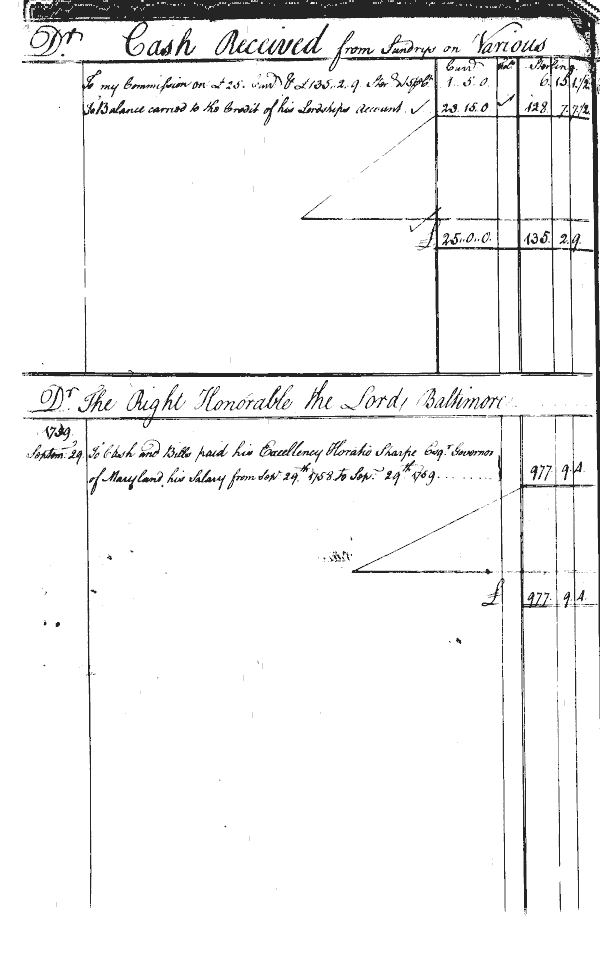 Dr. Cash Received from Sundrys on Various
Curr.t Sterling
To my Commission on £25. Curr.t & £135..2..9. Ster @ 5 p C.t 1..5..0. 6. 15. 1 1/2
To Balance carried to the Credit of his Lordships Account 23. 15. 0 128. 7. 7 1/2
£ 25..0..0. 135. 2. 9.
Dr. The Right Honorable the Lord Baltimore
1759.
Septem. 29. To Cash and Bills paid his Excellency Horatio Sharpe Esq.r Governor
of Maryland his Salary from Sep.r 29.th 1758 to Sep.r 29th 1759. 977. 9. 4.
£ 977. 9. 4.